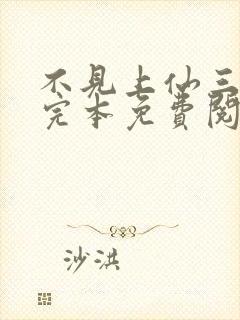 不見上仙三
完本免費閱
沙洪